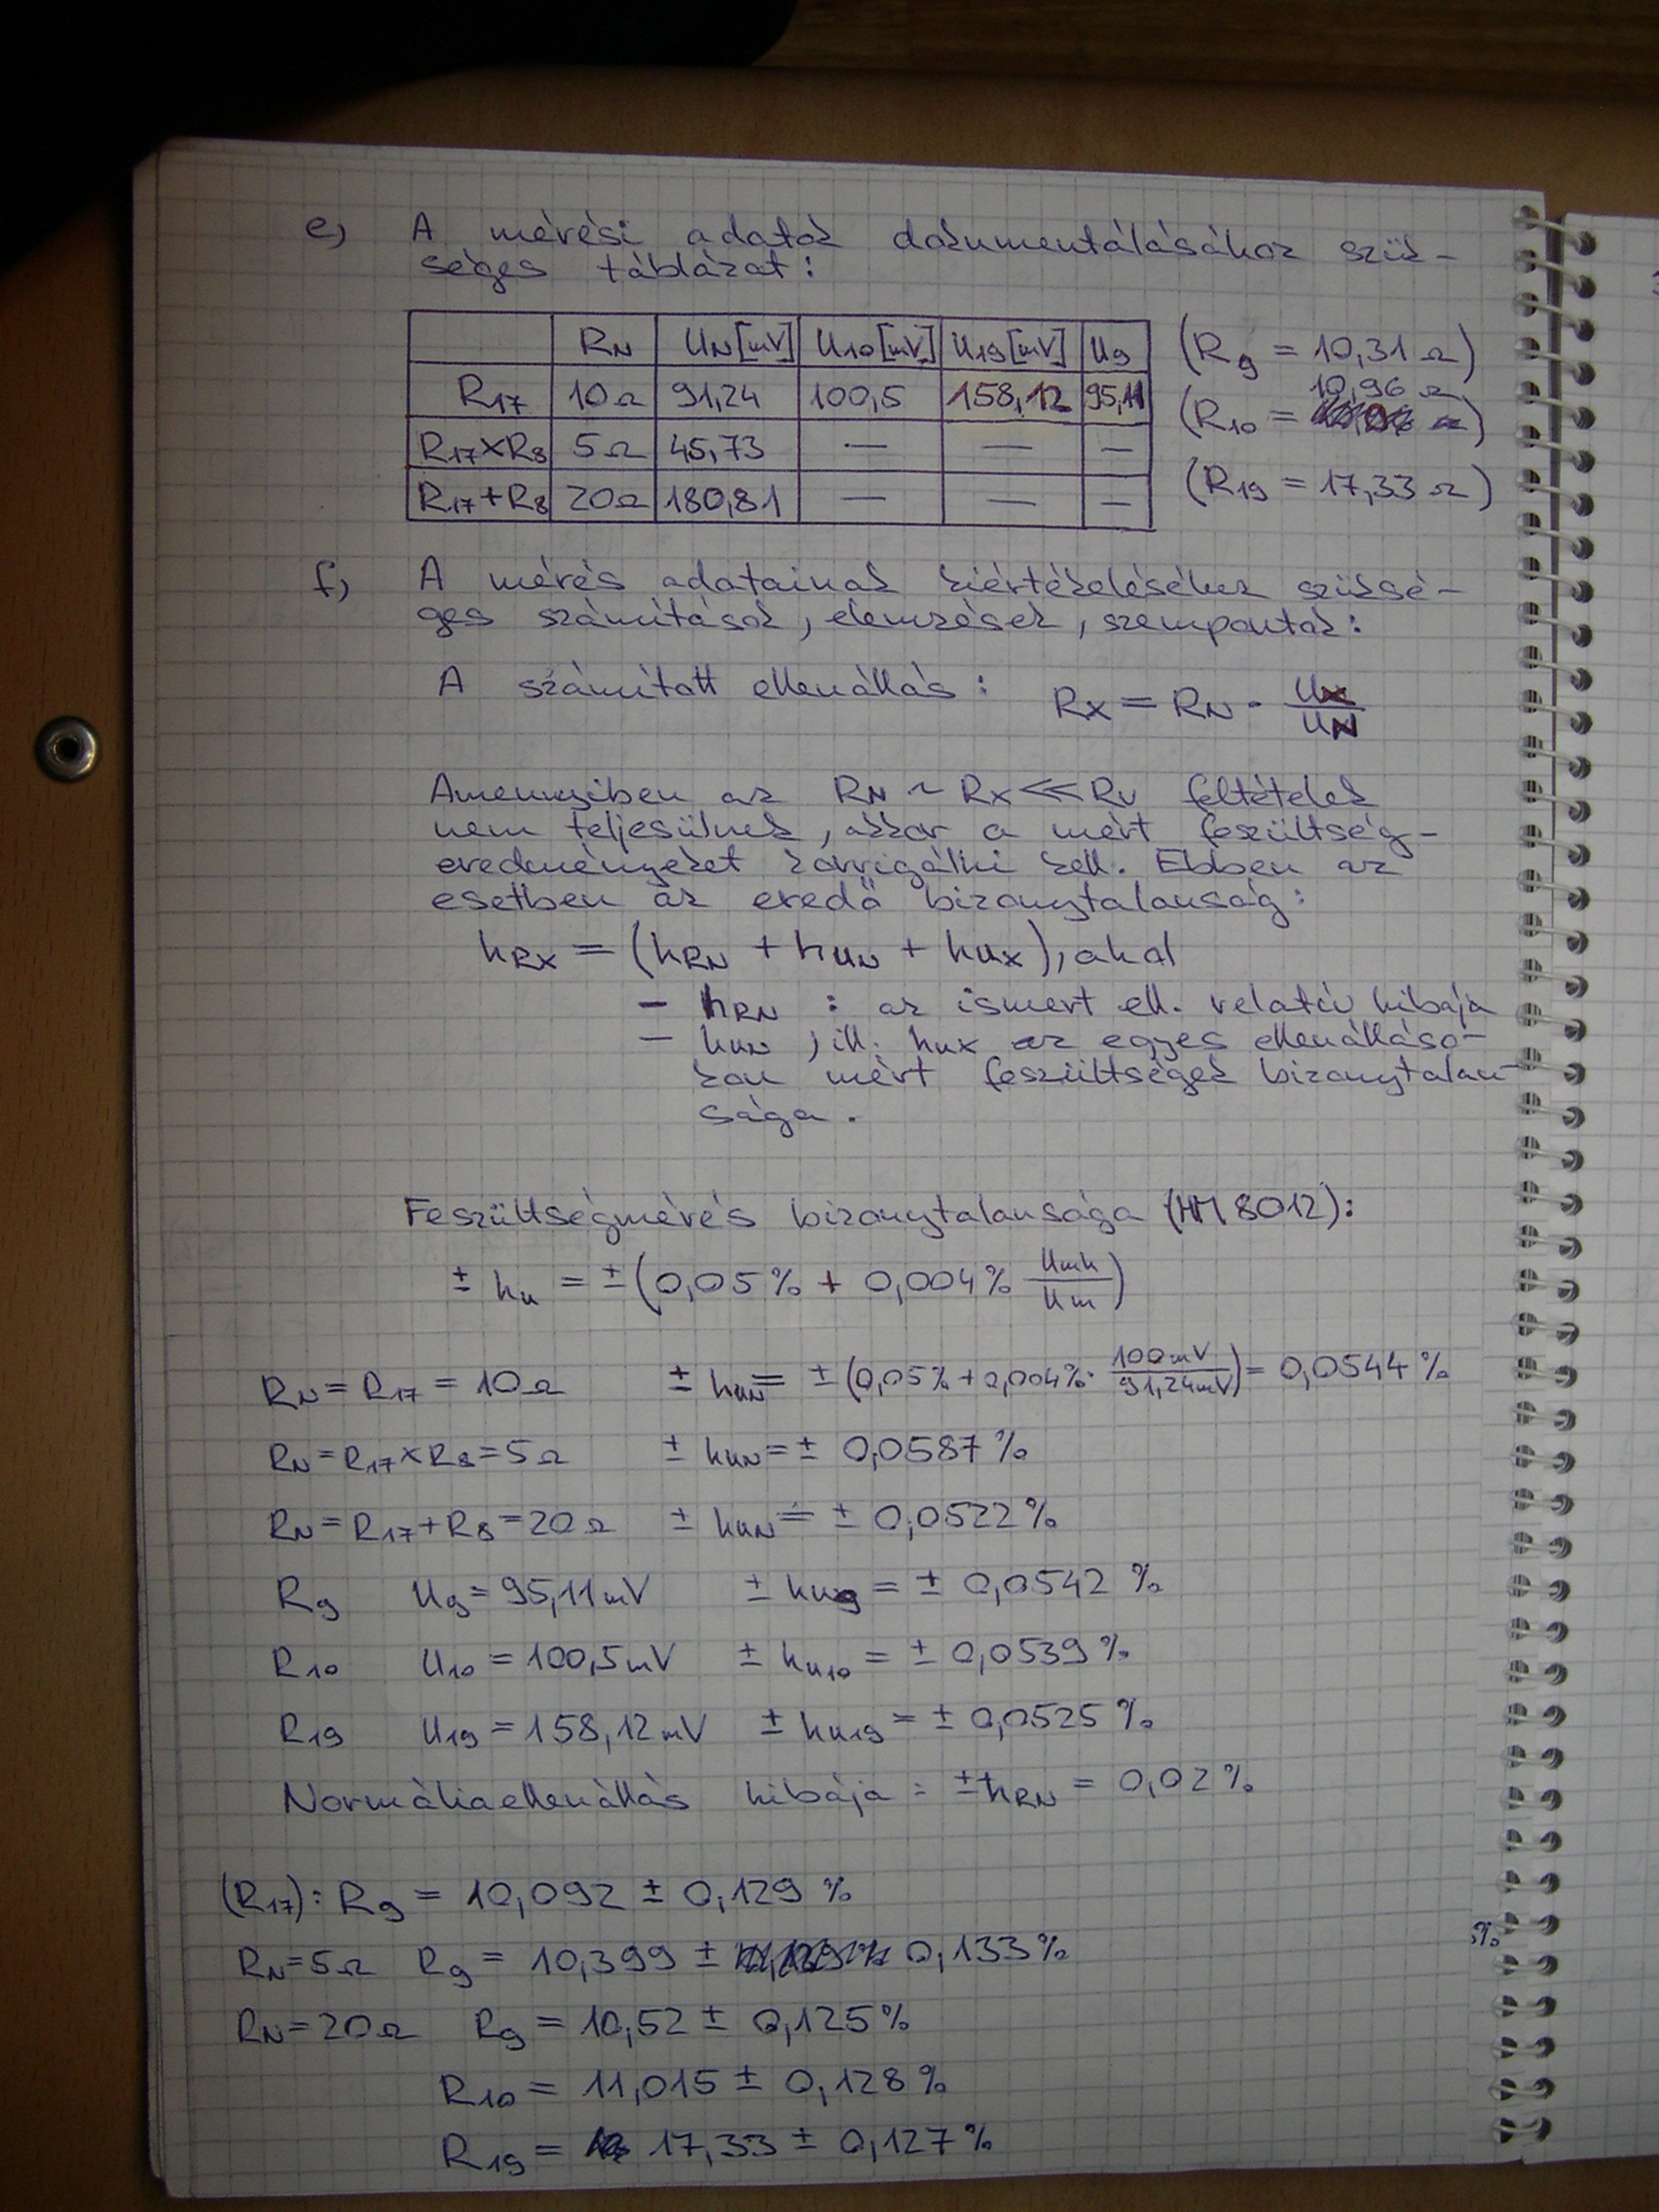 e) A mérési adatok dokumentálásához szük-
séges táblázat:
RN UN[mV] U10[mV] U19[mV] U9
R17 10Ω 91,24 100,5 158,12 95,11
R17×R8 5Ω 45,73 — — —
R17+R8 20Ω 180,81 — — —
(R9 = 10,31 Ω)
10,96 Ω
(R10 = )
(R19 = 17,33 Ω)
f) A mérés adatainak kiértékeléséhez szüksé-
ges számítások, elemzések, szempontok:
A számított ellenállás: RX = RN · UX/UN
Amennyiben az RN ~ RX << RV feltételek
nem teljesülnek, akkor a mért feszültség-
eredményeket korrigálni kell. Ebben az
esetben az eredő bizonytalanság:
hRX = (hRN + hUN + hUX), ahol
– hRN : az ismert ell. relatív hibája
– hUN, ill. hUX az egyes ellenálláso-
kon mért feszültségek bizonytalan-
sága.
Feszültségmérés bizonytalansága (HM 8012):
± hu = ±(0,05% + 0,004% Umh/Um)
RN = R17 = 10Ω ± hUN = ±(0,05% + 0,004% · 100mV/91,24mV) = 0,0544%
RN = R17×R8 = 5Ω ± hUN = ± 0,0587%
RN = R17+R8 = 20Ω ± hUN = ± 0,0522%
R9 U9 = 95,11mV ± hU9 = ± 0,0542 %
R10 U10 = 100,5mV ± hU10 = ± 0,0539%
R19 U19 = 158,12mV ± hU19 = ± 0,0525%
Normáliaellenállás hibája: ±hRN = 0,02%
(R17): R9 = 10,092 ± 0,129 %
RN=5Ω R9 = 10,399 ± 0,133%
RN=20Ω R9 = 10,52 ± 0,125%
R10 = 11,015 ± 0,128%
R19 = 17,33 ± 0,127%
%